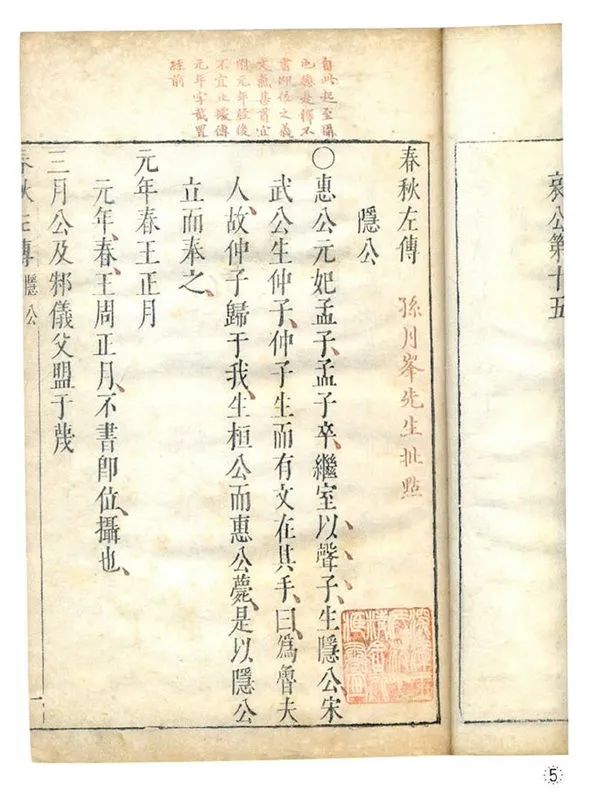 哀公第十五
春秋左傳 孫月峯先生批點
隱公
自此起至攝
也總是釋不
書卽位之義
文氣甚貫宜
附元年經後
不宜止據傳
元年字截置
經前
○惠公元妃孟子、孟子卒、繼室以聲子、生隱公宋
武公生仲子、仲子生而有文在其手、曰、爲魯夫
人、故仲子歸于我、生桓公而惠公薨、是以隱公
立而奉之、
元年春王正月
元年、春、王周正月、不書卽位、攝也、
三月公及邾儀父盟于蔑
春秋左傳 隱公 一
5